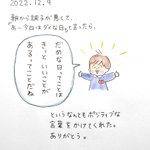 2022.12.9
朝から調子が悪くて、
「あー今日はダメな日」って言ったら、
だめな日ってことは
きっといいことが
あるってことだね
というなんともポジティブな
言葉をかけてくれた。
ありがとう。